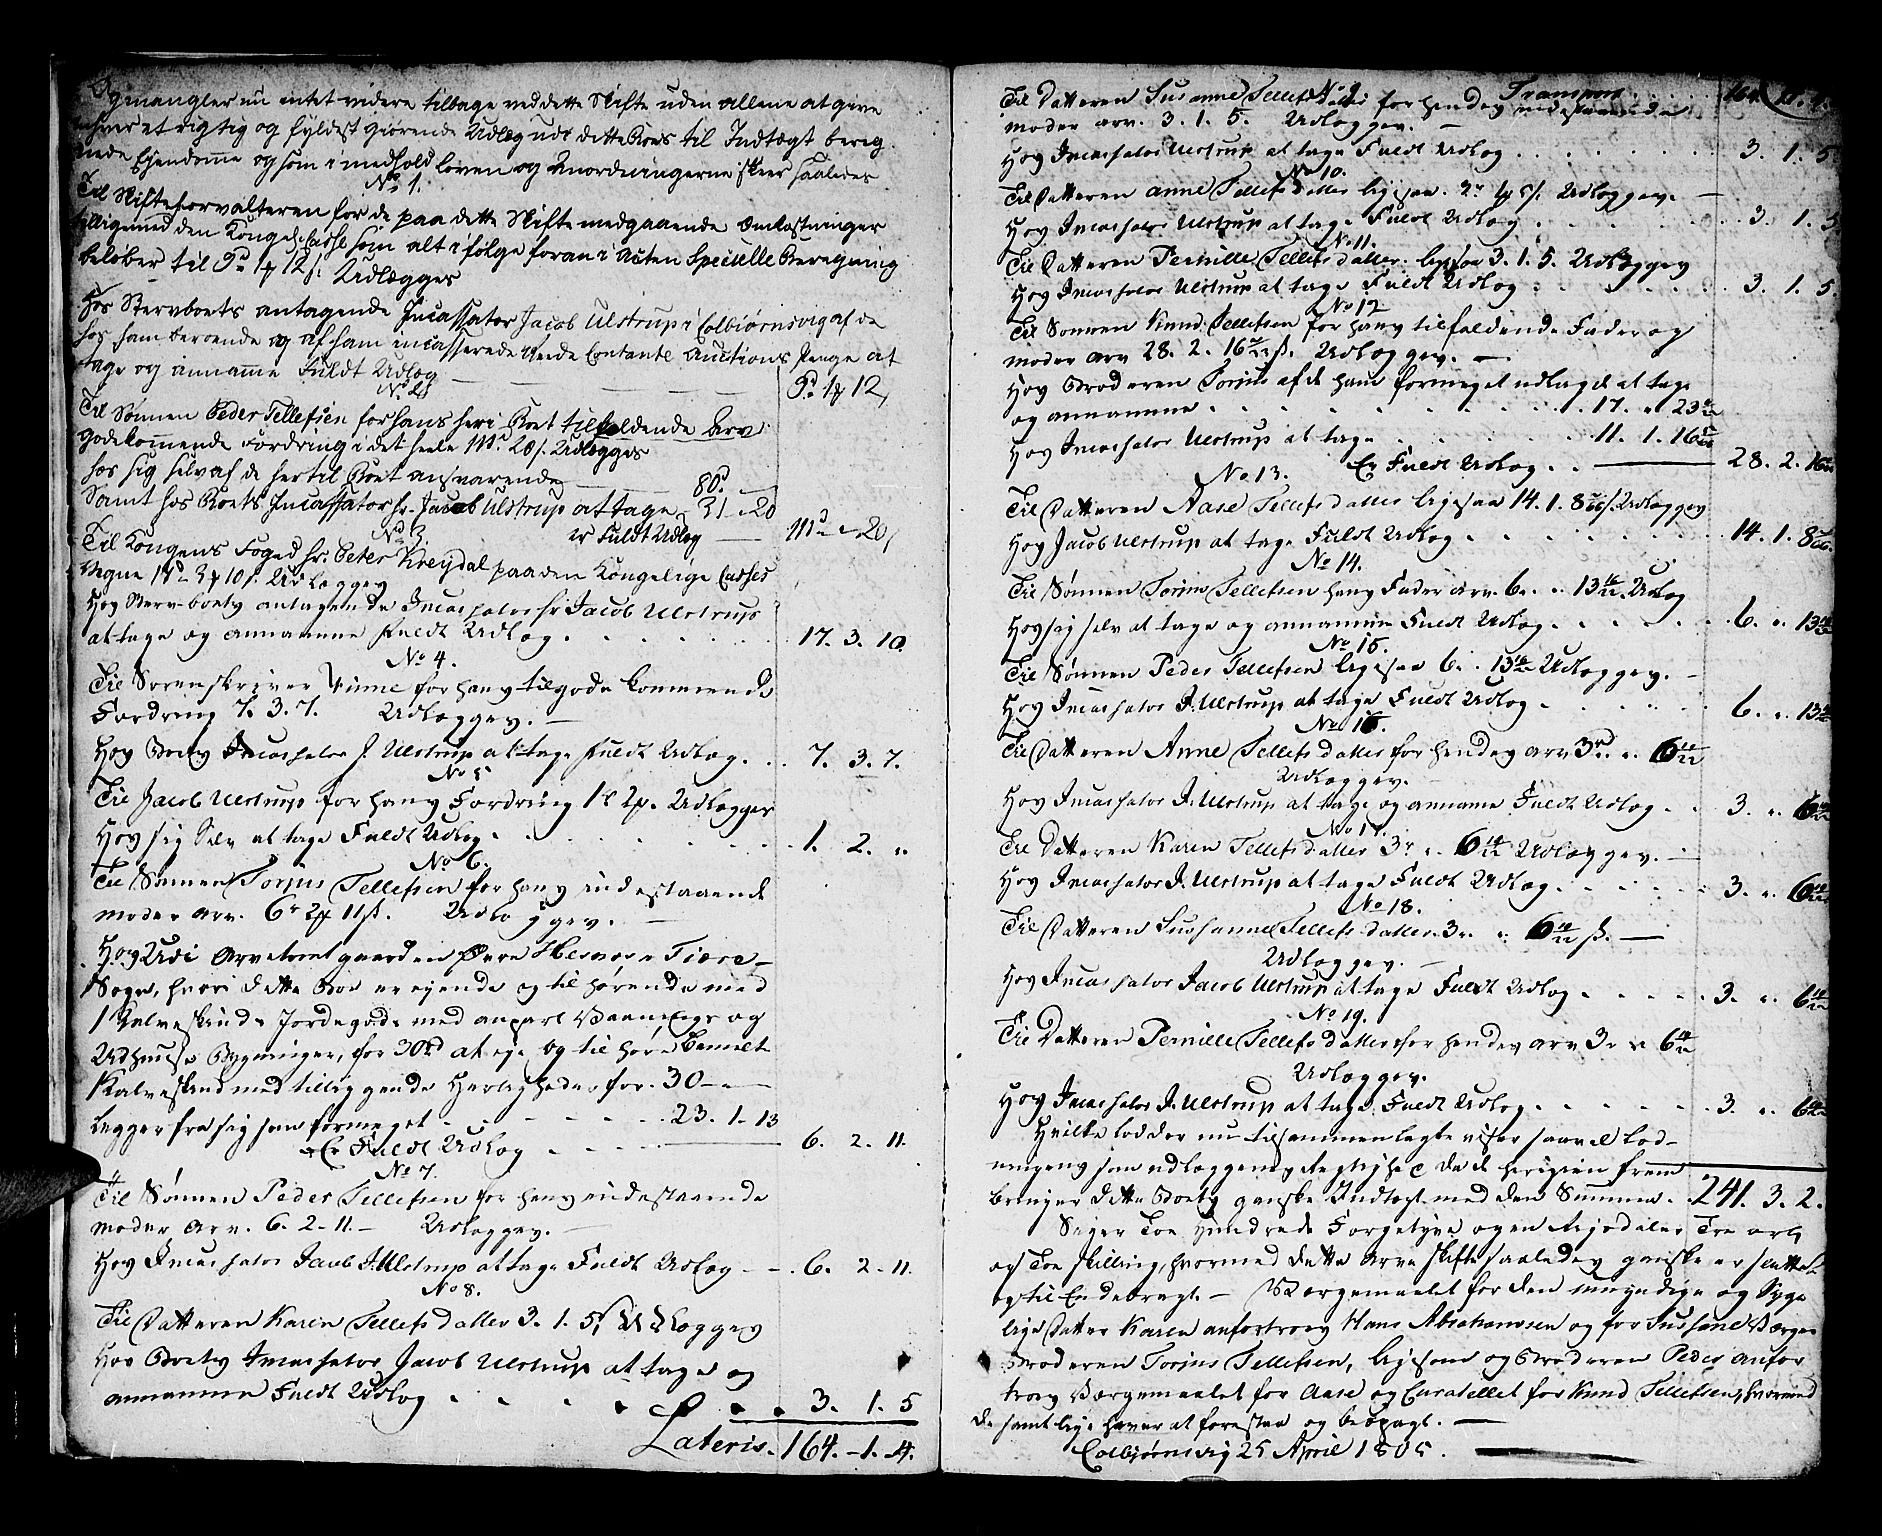 Og mangler nu intet videre tilbage ved dette Skifte uden allene at give
enhver et rigtig og fyldest giørende Udlæg udi dette Boes til Indtægt bereg
nede Ejendomme og som i medhold loven og Anordningerne skeer saaledes
No 1.
Til Skifteforvalteren for de paa dette Skifte medgaaende Omkostninger
tilligemed den Kongel. Casse som alt i følge foran i Acten Specielle Beregning
beløber til 9rd 1# 12 s. Udlægges
Hos Stervboets antagende Incassator Jacob Ulstrup i Colbiørnsvig af de
hos ham beroende og af ham incasserede Contante Auctions Penge at
tage og annamme Fuldt Udlæg 9rd 1# 12
No 2
Til Sønnen Peder Tellefsen for hans her i Boet tilfaldende Arv
godekommende Fordring i det heele 111rd 20 s. Udlægges
hos sig selv af de hertil Boet ansvarende 80rd
Samt hos Boets Incassator hr. Jacob Ulstrup at tage 31 - 20
er Fuldt Udlæg 111rd - 20
No 3.
Til Kongens Foged hr. Peter Kreydal paa den Kongelige Casses
Vegne 17rd 3# 10 s. Udlægges
Hos Sterv-boets antagende Incassator hr Jacob Ulstrup
at tage og annamme Fuldt Udlæg . . . 17. 3. 10.
No 4.
Til Sorenskriver Finne for hans tilgode kommende
Fordring 7. 3. 7. Udlægges. —
Hos Boets Incassator J. Ulstrup at tage Fuldt Udlæg. . . 7. 3. 7.
No 5
Til Jacob Ulstrup for hans Fordring 1r 2#. Udlægges
Hos sig Selv at tage Fuldt Udlæg . . . 1. 2. "
No 6.
Til Sønnen Torjus Tellefsen for hans indestaaende
moder arv. 6r 2# 11 s. Udlægges. —
Hos Udi Arvetomt gaarden Øvre Hesnes i Fiære-
Sogn, hvori dette Boe er ejende og tilhørende med
1 Kalveskinds Jordegods med anpart Vaanings og
Udhuuse Bygninger, for 30rd at eje og tilhøre bemelt
Kalveskind med tilliggende Herligheder for. 30 - " -
Legger fra sig som formeget . . . 23. 1. 13
Er Fuldt Udlæg . . . 6. 2. 11.
No 7.
Til Sønnen Peder Tellefsen for hans indestaaende
moder arv. 6. 2 - 11. — Udlægges. —
Hos Incassator Jacob Ulstrup at tage Fuldt Udlæg - - . 6. 2 - 11.
No 8.
Til Datteren Karen Tellefsdatter 3. 1. 5 s. Udlægges
Hos Boets Incassator Jacob Ulstrup at tage og
annamme Fuldt Udlæg . . . 3. 1. 5
Lateris. 164. - 1. 4.
Transport 164.
No 9
Til Datteren Susanne Tellefsdatter for hendes indestaaende
moder arv. 3. 1. 5. Udlægges. —
Hos Incassator Ulstrup at tage Fuldt Udlæg . . . 3. 1. 5
No 10.
Til Datteren Anne Tellefsdatter ligesaa. 3r 1# 5 s. Udlægges. —
Hos Incassator Ulstrup at tage Fuldt Udlæg . . . 3. 1. 5
No 11.
Til Datteren Pernille Tellefsdatter. ligesaa 3. 1. 5. Udlægges
Hos Incassator Ulstrup at tage Fuldt Udlæg . . . 3. 1. 5.
No 12
Til Sønnen Knud Tellefsen for hans tilfaldende Fader og
moder arv 28. 2. 16 s. Udlægges. —
Hos Broderen Torjus af de ham formeget udlagde at tage
og annamme . . . 17. " 23
Hos Incassator Ulstrup at tage . . . 11. 1. 16
Er Fuldt Udlæg . . . 28. 2. 16
No 13.
Til Datteren Aase Tellefsdatter ligesaa 14. 1. 8 s. Udlægges
Hos Jacob Ulstrup at tage Fuldt Udlæg . . . 14. 1. 8
No 14.
Til Sønnen Torjus Tellefsen hans Fader arv. 6. " 13 Udlæg
Hos sig selv at tage og annamme Fuldt Udlæg . . . 6. " 13
No 15.
Til Sønnen Peder Tellefsen ligesaa 6. " 13 Udlægges. —
Hos Incassator J. Ulstrup at tage Fuldt Udlæg . . . 6. " 13
No 16.
Til Datteren Anne Tellefsdatter for hendes arv 3rd. " 6
Udlægges. —
Hos Incassator J. Ulstrup at tage og annamme Fuldt Udlæg . . 3. " 6
No 17.
Til Datteren Karen Tellefsdatter 3r " 6 Udlægges. —
Hos Incassator J. Ulstrup at tage Fuldt Udlæg . . . 3. " 6
No 18.
Til Datteren Sussanne Tellefsdatter. 3r. " 6 s. —
Udlægges. —
Hos Incassator Jacob Ulstrup at tage Fuldt Udlæg . . . 3. " 6
No 19.
Til Datteren Pernille Tellefsdatter for hendes arv 3r " 6
Udlægges.
Hos Incassator J. Ulstrup at tage. Fuldt Udlæg . . . 3. " 6
Hvilke lodder nu tilsammenlagte viser saavel lod-
ningens som udlæggenes rigtighed da de herigien frem
bringer dette Boets ganske Indtægt med den Summa . . 241. 3. 2.
Siger Toe Hundrede Fyrgetyve og en Rigsdaler Tre ort
og Toe skilling, hvormed dette Arve skifte saaledes ganske er sluttet
og til Endebragt. — Værgemaalet for den umyndige og Syge
lige Datter Karen anfortroes Hans Abrahamsen og for Sussane Værger
Broderen Torjus Tellefsen, ligesom og Broderen Peder anfor
troes Værgemaalet for Aase og Curatellet for Knud Tellefsen, hvormed
de samtlige haver at forestaa og besørget. —
Colbjørnsvig 25 April 1805.